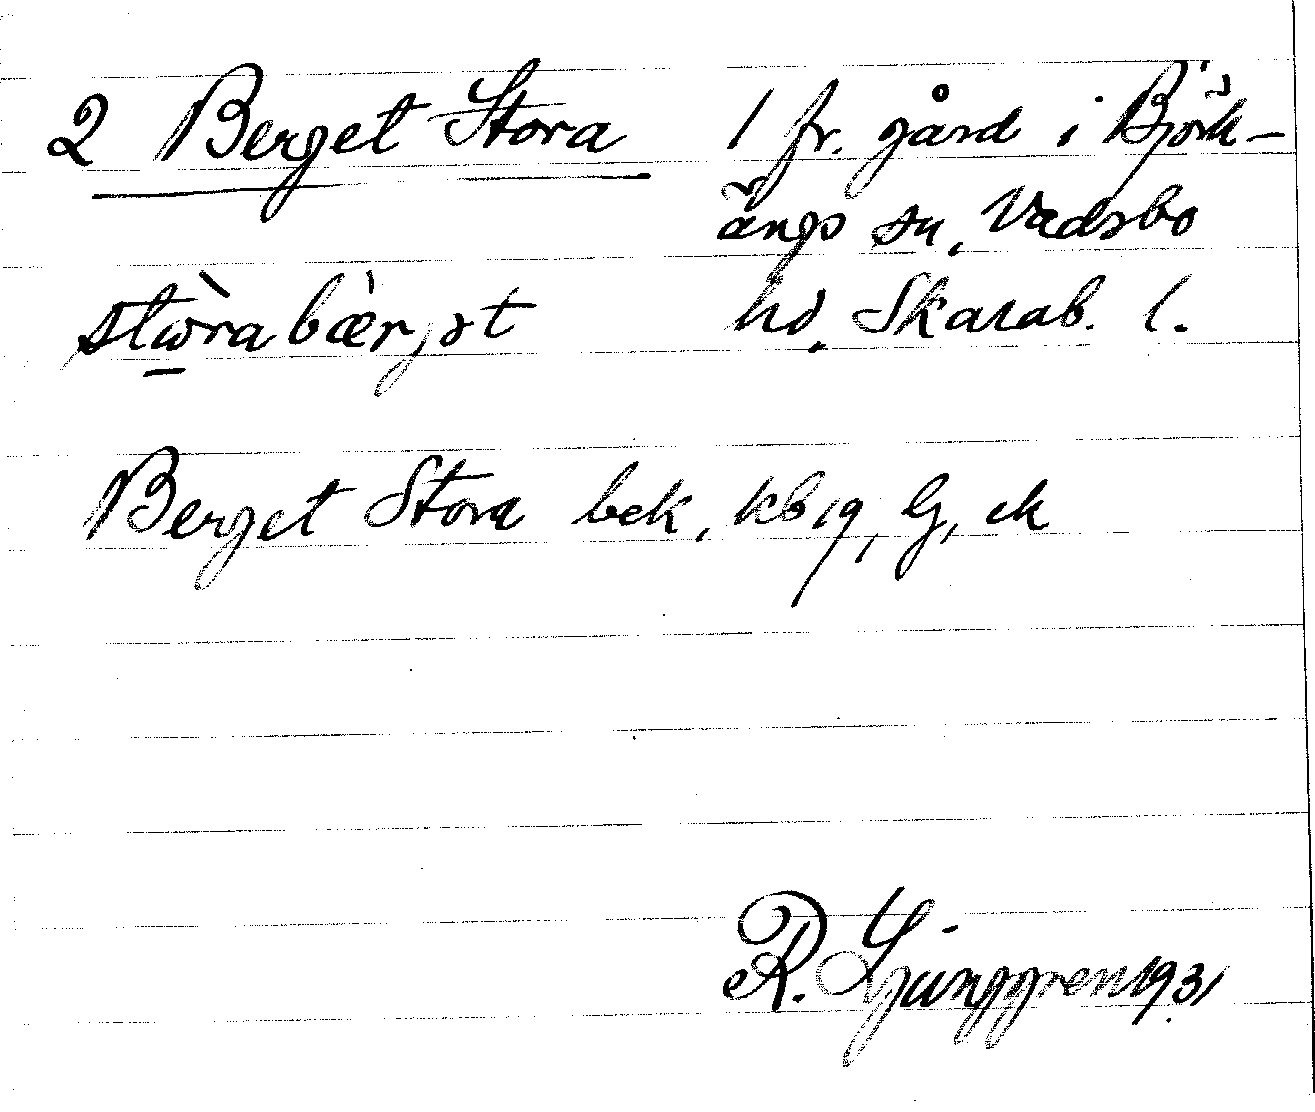 2 Berget Stora
1 fr. gård i Björk-
ängs sn, Vadsbo
hd, Skarab. l.
stòrabær,ət
Berget Stora bek, kb 19, lj, ek
R. Ljunggren 1931